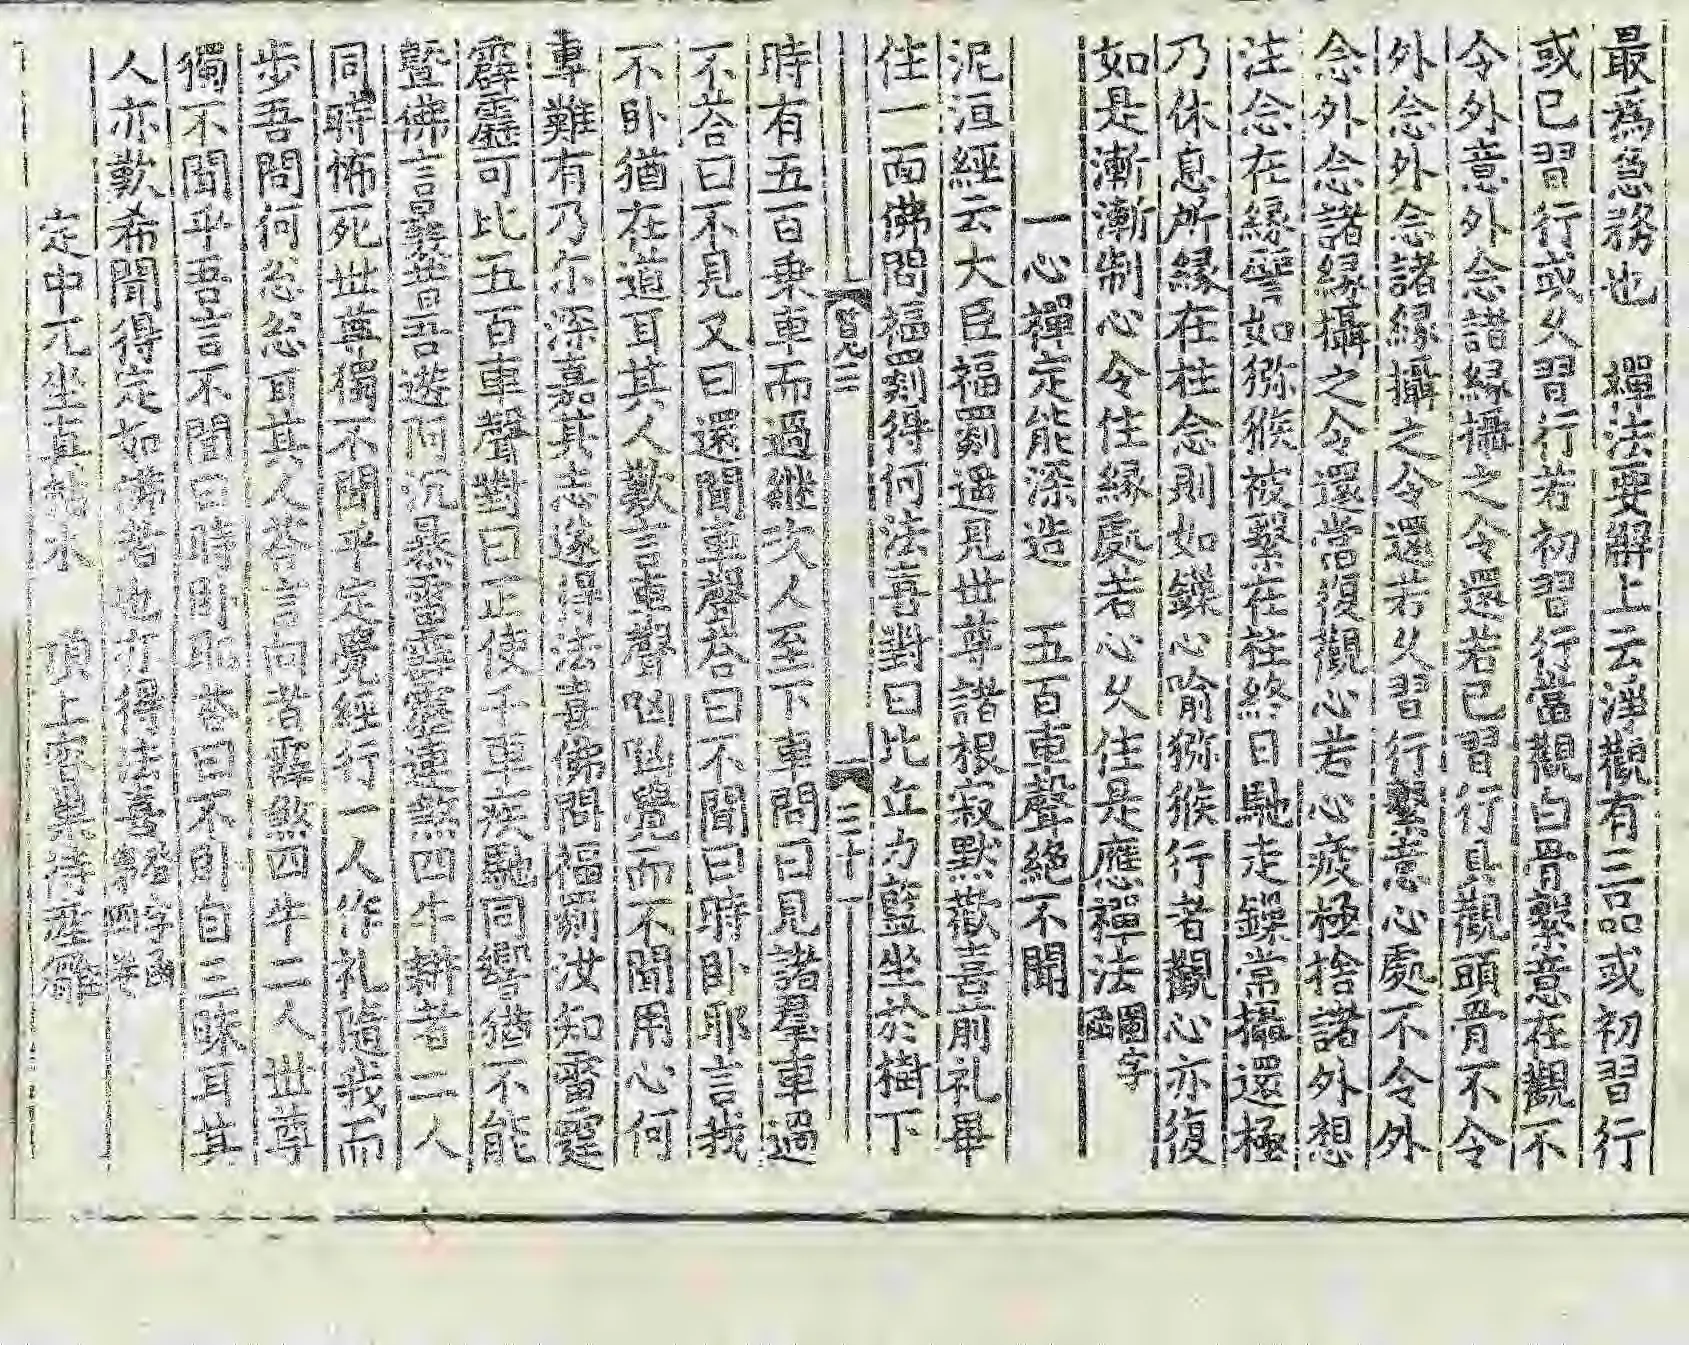 最為急務也　禪法要解上云淨觀有三品或初習行
或已習行或久習行若初習行當觀白骨繫意在觀不
令外意外念諸緣攝之令還若已習行具觀頭骨不令
外念外念諸緣攝之令還若久習行繫意心處不令外
念外念諸緣攝之令還當復觀心若心疲極捨諸外想
注念在緣譬如獼猴被繫在柱終日馳走鏁常攝還極
乃休息所緣在柱念則如鏁心喻獼猴行者觀心亦復
如是漸漸制心令住緣處若心久住是應禪法圖字函
一心禪定能深造　五百車聲絕不聞
泥洹經云大臣福罽遥見世尊諸根寂默歡喜前礼畢
住一面佛問福罽得何法喜對曰比丘力藍坐於樹下
賢九三　三十一
時有五百乗車而過継次人至下車問曰見諸羣車過
不荅曰不見又曰還聞車聲荅曰不聞曰時卧耶言我
不卧猶在道耳其人歎言車聲㕼㕼覺而不聞用心何
專難有乃尒深嘉其志遂得法喜佛問福罽汝知雷霆
霹靂可比五百車聲對曰正使千車疾馳同響猶不能
譬佛言㬥昔吾遊阿沉暴雷霹靂連煞四牛耕者二人
同時怖死世尊獨不聞乎定覺經行一人作礼隨我而
步吾問何忩忩耳其人荅言向者霹煞四牛二人世尊
獨不聞乎吾言不聞曰時卧耶荅曰不卧自三昧耳其
人亦歎希聞得定如佛者也力得法喜 字函四卷
定中兀坐直 水　頂上 巢待產雛